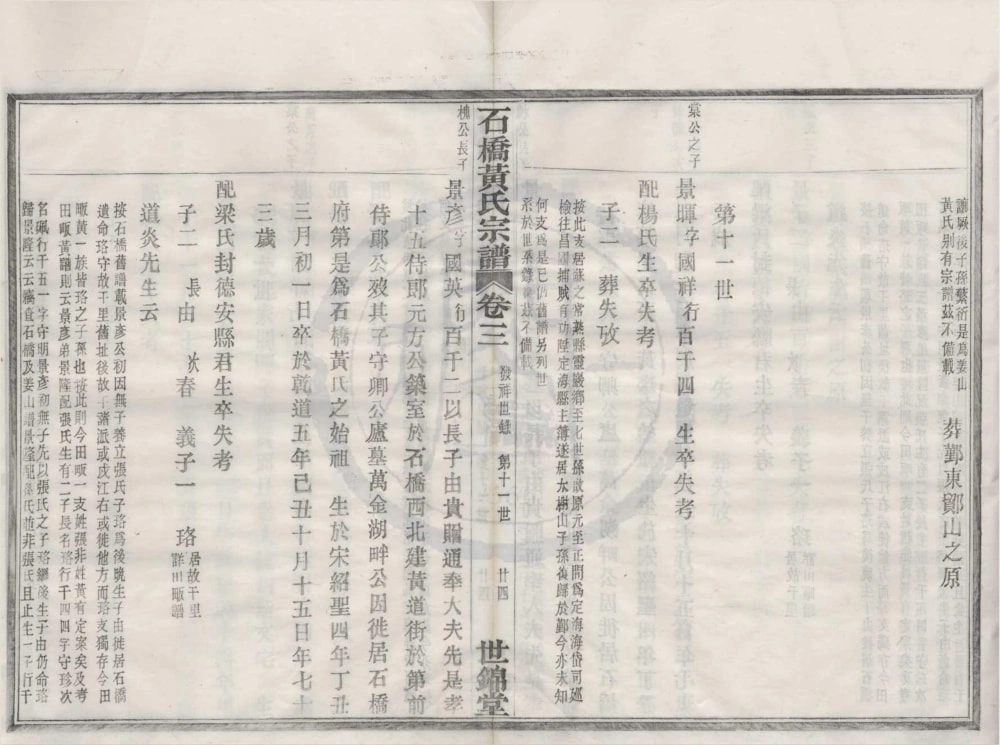 謙厥後子孫繁衍是爲姜山
黃氏别有宗譜茲不備載
葬鄞東鄮山之原
第十一世
棠公之子
景暉字國祥行百千四 生卒失考
配楊氏生卒失考
子二 葬失攷
按此支居蘇之常熟縣靈巖鄉至七世孫啟原元至正間爲定海海岱司巡
檢往昌國捕賊有功陞定海縣主薄遂居木樹山子孫復歸於鄞今亦未知
何支爲是已仍舊譜另列世
系於世系錄後茲不備載
石橋黃氏宗譜 卷三 發祥世錄 第十一世 廿四 世錦堂
樵公長子
景彥字國英行百千二以長子由貴贈通奉大夫先是孝
十五侍郎元方公築室於石橋西北建黃道街於第前
侍郎公歿其子守卿公廬墓萬金湖畔公因徙居石橋
府第是爲石橋黃氏之始祖 生於宋紹聖四年丁丑
三月初一日卒於乾道五年己丑十月十五日年七十
三歲
配梁氏封德安縣君生卒失考
子二 長由 次春 義子一 珞 居故干里
詳田㽘譜
道炎先生云
按石橋舊譜載景彥公初因無子養立張氏子珞爲後晚生子由徙居石橋
遺命珞守故干里舊址後故干諸派或戍江右或徙他方而珞支獨存今田
㽘黃一族皆珞之子孫也按此則今田㽘一支姓張非姓黃有定案矣及考
田㽘黃譜則云景彥弟景隆配張氏生有二子長名珞行千四四字守珍次
名珮行千五一字守明景彥初無子先以張氏之子珞繼後生子由仍命珞
歸景隆云云續查石橋及姜山譜景隆配孫氏並非張氏且止生一子行千